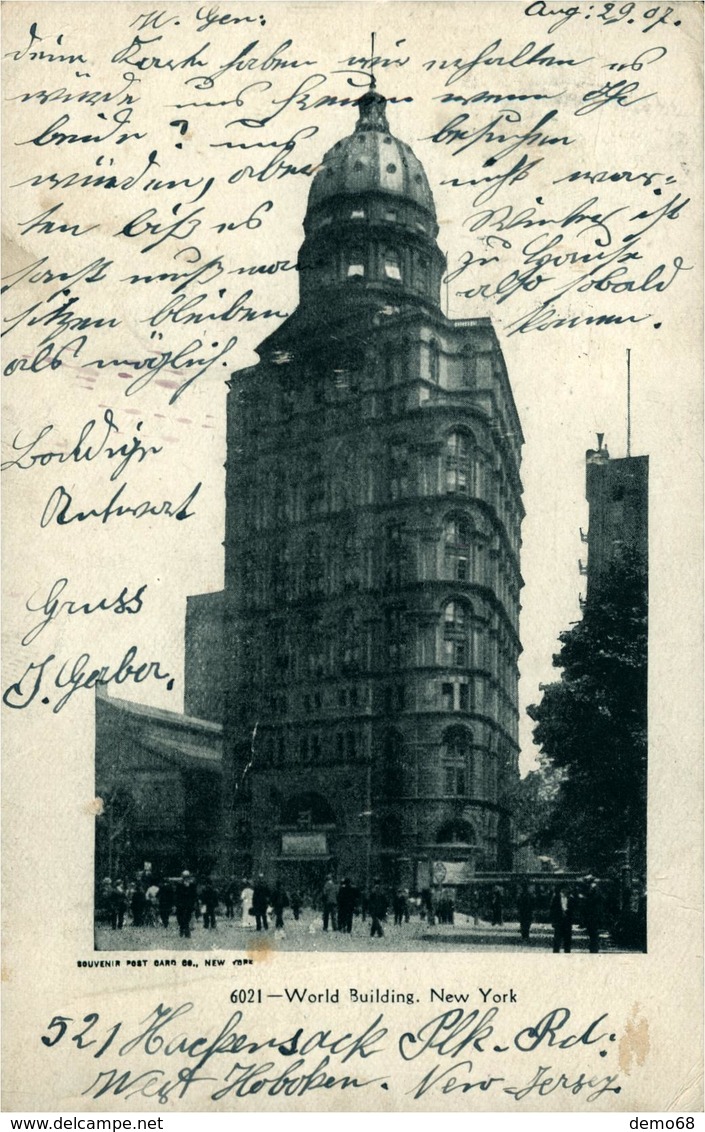 W. Gen:
Aug: 29. 07.
deine Karte haben wir erhalten es
würde uns freuen wenn Ihr
beide ? uns besuchen
würden, aber nicht war=
ten biß es Winter ist
sonst muß man zu Hause
sitzen bleiben also sobald
als möglich. kommen.
Baldige
Antwort
Gruss
J. Gerber.
SOUVENIR POST CARD CO., NEW YORK
6021—World Building. New York
521 Hackensack Plk. Rd.
West Hoboken. New-Jersey.